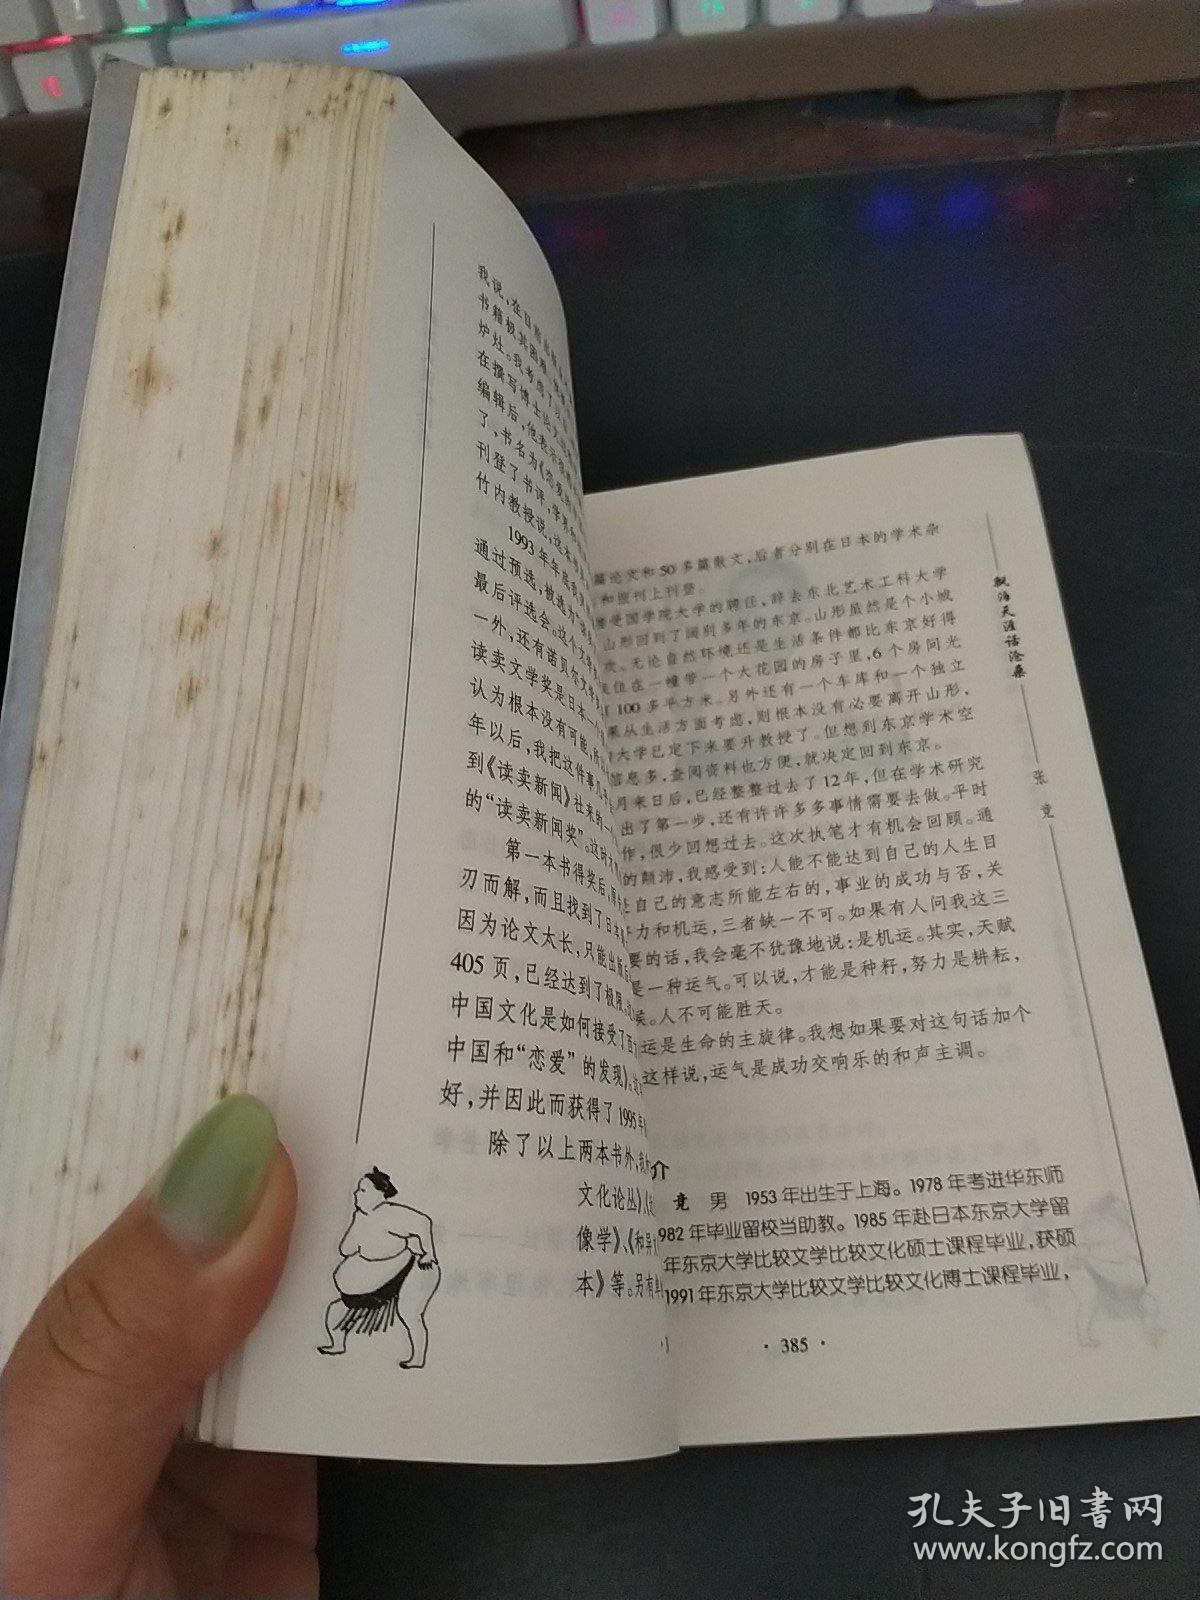 我说,在目前出版
书籍极其困难
炉灶。我考虑了以后
在撰写博士论文
编辑后,他表示很
了,书名为《恋爱的
刊登了书评,学界和
竹内教授说,这本书
1993年年底我
通过预选,被选为
最后评选会。这个
一外,还有诺贝尔文学
读卖文学奖是日本一
认为根本没有可能,所
年以后,我把这件事几乎
到《读卖新闻》社来的一
的“读卖新闻奖”。这时才
第一本书得奖后,
刃而解,而且找到了日本
因为论文太长,只能出版
405页,已经达到了极限。
中国文化是如何接受了西
中国和“恋爱”的发现》。
好,并因此而获得了1995年
除了以上两本书外,我
文化论丛》、
像学》、《和异
本》等。另有单
篇论文和50多篇散文,后者分别在日本的学术杂
和报刊上刊登。
接受国学院大学的聘任,辞去东北艺术工科大学
山形回到了阔别多年的东京。山形虽然是个小城
欢。无论自然环境还是生活条件都比东京好得
住在一幢带一个大花园的房子里,6个房间光
100多平方米。另外还有一个车库和一个独立
果从生活方面考虑,则根本没有必要离开山形,
大学已定下来要升教授了。但想到东京学术空
信息多,查阅资料也方便,就决定回到东京。
月来日后,已经整整过去了12年,但在学术研究
出了第一步,还有许许多多事情需要去做。平时
作,很少回想过去。这次执笔才有机会回顾。通
的颠沛,我感受到:人能不能达到自己的人生目
自己的意志所能左右的,事业的成功与否,关
力和机运,三者缺一不可。如果有人问我这三
要的话,我会毫不犹豫地说:是机运。其实,天赋
是一种运气。可以说,才能是种籽,努力是耕耘,
候。人不可能胜天。
运是生命的主旋律。我想如果要对这句话加个
这样说,运气是成功交响乐的和声主调。
介
竞 男 1953年出生于上海。1978年考进华东师
982年毕业留校当助教。1985年赴日本东京大学留
年东京大学比较文学比较文化硕士课程毕业,获硕
1991年东京大学比较文学比较文化博士课程毕业,
·385·
飘泊天涯话沧桑
张竞
孔夫子旧书网
www.kongfz.com